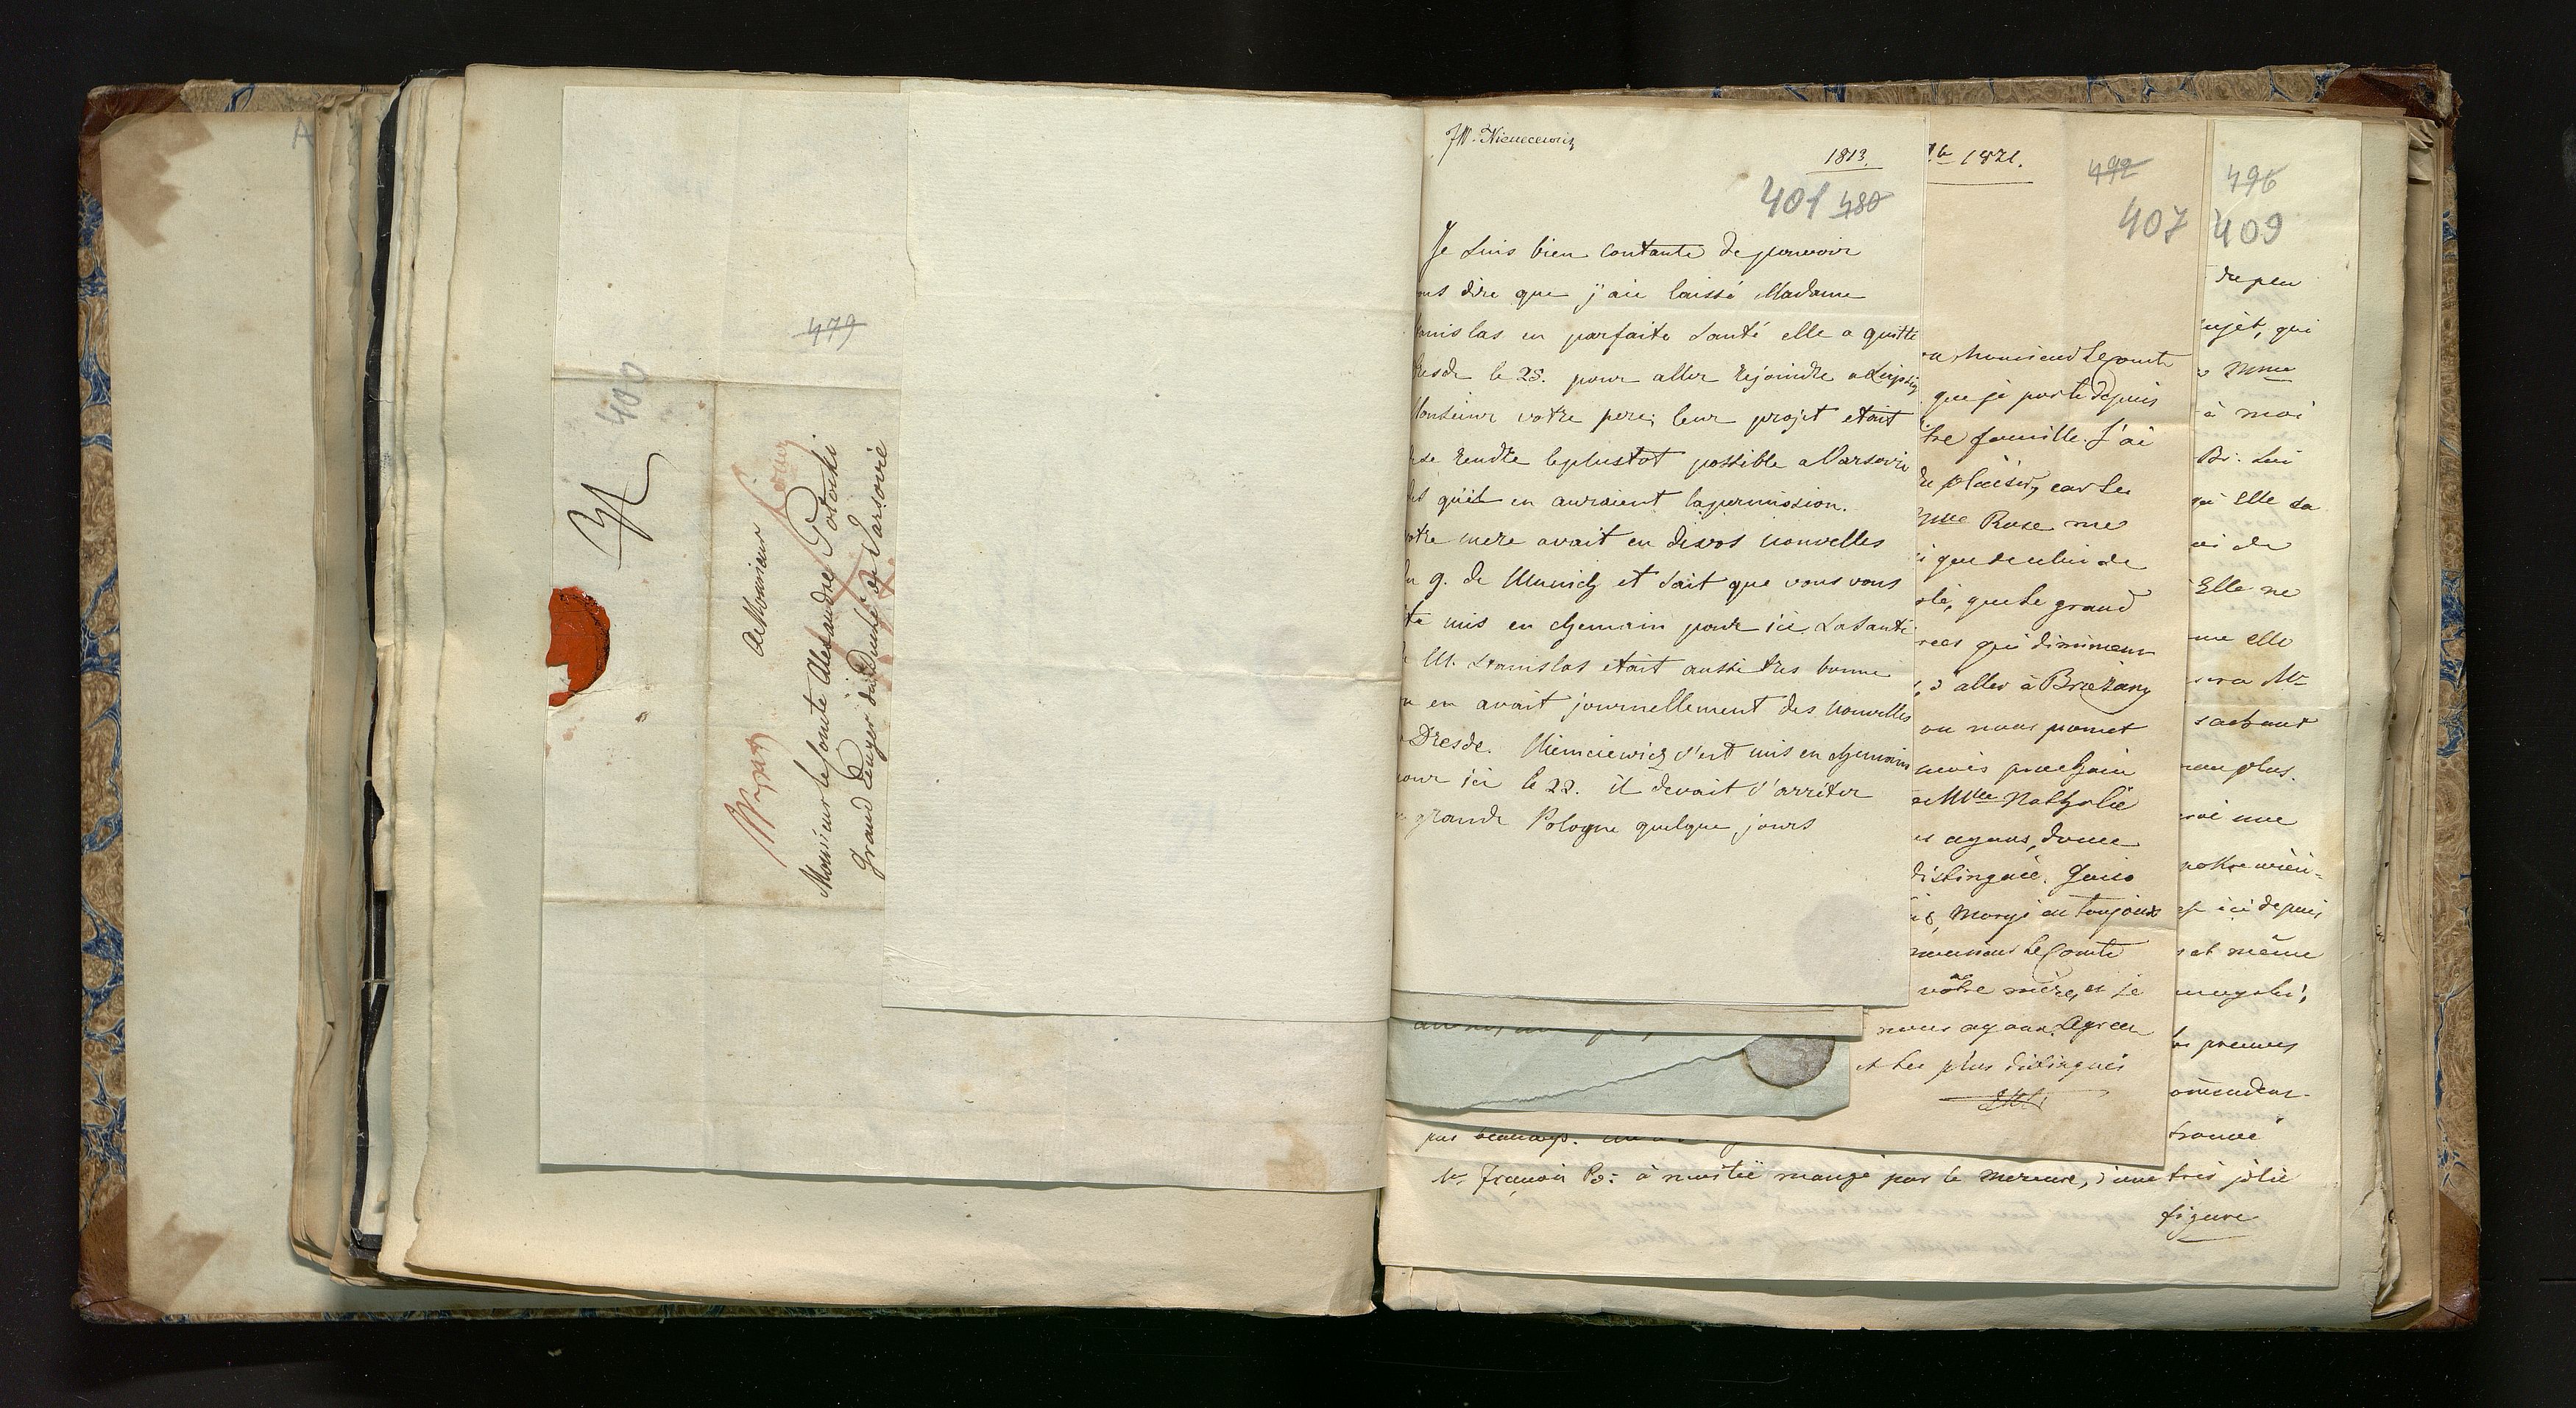 479
400
A Monsieur
Monsieur le Comte Alexandre Potocki
Grand Ecuyer du Duché de Varsovie
1813.
401 480
Je suis bien contante de pouvoir
ous dire que j'aie laissé Madame
anislas en parfaite santé elle a quitté
resde le 25. pour aller rejoindre a Leipsig
Monsieur votre pere; leur projet etait
se rendre leplustot possible a Varsovie
qu'il en auraient lapermission.
otre mere avait eu devos nouvelles
du 9. de Munich et sait que vous vous
te mis en chemain pour ici. La santé
M. Stanislas etait aussi tres bonne
n en avait journellement des nouvelles
Dresde. Niemciewicz s'est mis en chemain
our ici le 22. il devait s'arréter
grande Pologne quelque jours
1821.
492
407
que je porte depuis
tre famille. J'ai
de plaisir, car les
Rose me
que celui de
que le grand
qui diminuent
d'aller à Brzezany
on nous promet
mois prochain
Mlle Nathalie
ayons, donne
distinguée.
toujours
monsieur le Comte
votre mère, et je
nous ayons. Agréer
et les plus distingués
496
409
de peu
ujet, qui
Mme
à moi
Br: lui
qu'elle sa
de
Elle ne
me elle
sera Mr
sachant
non plus.
une
notre
ici depuis
et même
les preuves
trouvé
pas beaucoup.
Mr François Po: à moitié mangé par le mercure, d'une très jolie
figure